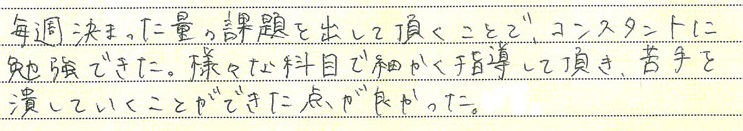 毎週決まった量の課題を出して頂くことで、コンスタントに
勉強できた。様々な科目で細かく指導して頂き、苦手を
潰していくことができた点が良かった。